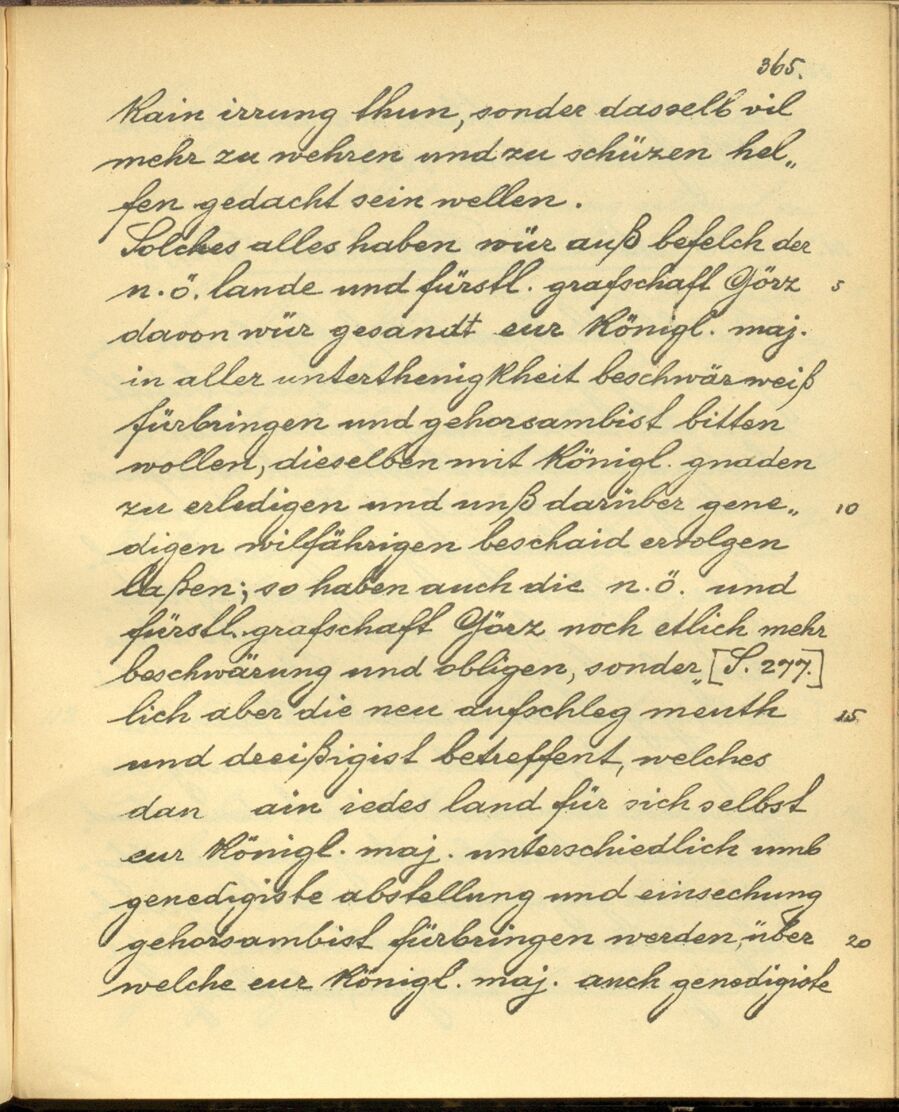 365.
kain irrung thun, sonder dasselb vil
mehr zu wehren und zu schüzen hel„
fen gedacht sein wellen.
Solches alles haben wür auß befelch der
n. ö. lande und fürstl. grafschaft Görz 5
davon wür gesandt eur königl. maj.
in aller unterthenigkheit beschwärweiß
fürbringen und gehorsambist bitten
wollen, dieselben mit königl. gnaden
zu erledigen und unß darüber gene„ 10
digen wilfährigen beschaid ervolgen
laßen; so haben auch die n. ö. und
fürstl. grafschaft Görz noch etlich mehr
beschwärung und obligen, sonder„ [S. 277.]
lich aber die neu aufschleg meuth 15
und dreißigist betreffent, welches
dan ain iedes land für sich selbst
eur königl. maj. unterschiedlich umb
genedigiste abstellung und einsechung
gehorsambist fürbringen werden, über 20
welche eur königl. maj. auch genedigiste